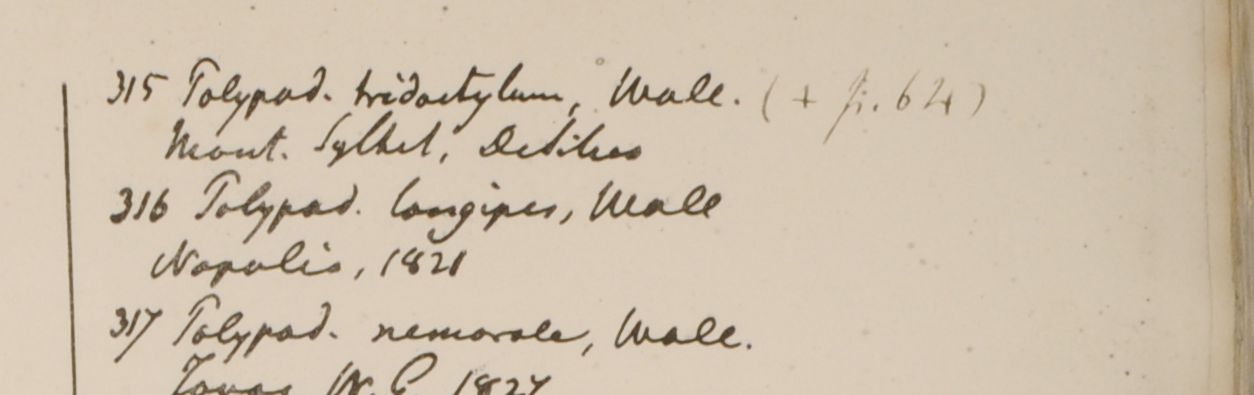 315 Polypod. tridactylum, Wall. (+ p. 624)
Mont. Sylhet, DeSilva
316 Polypod. longipes, Wall
Napalia, 1821
317 Polypod. nemorale, Wall.
1827